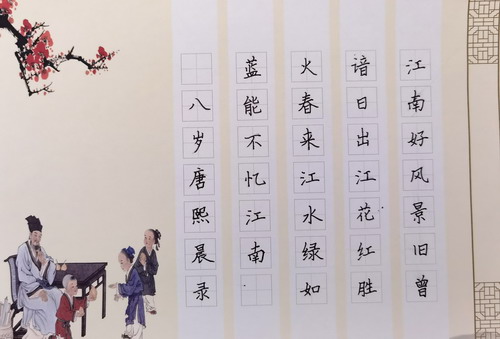 江南好风景旧曾
谙日出江花红胜
火春来江水绿如
蓝能不忆江南
八岁唐熙晨录